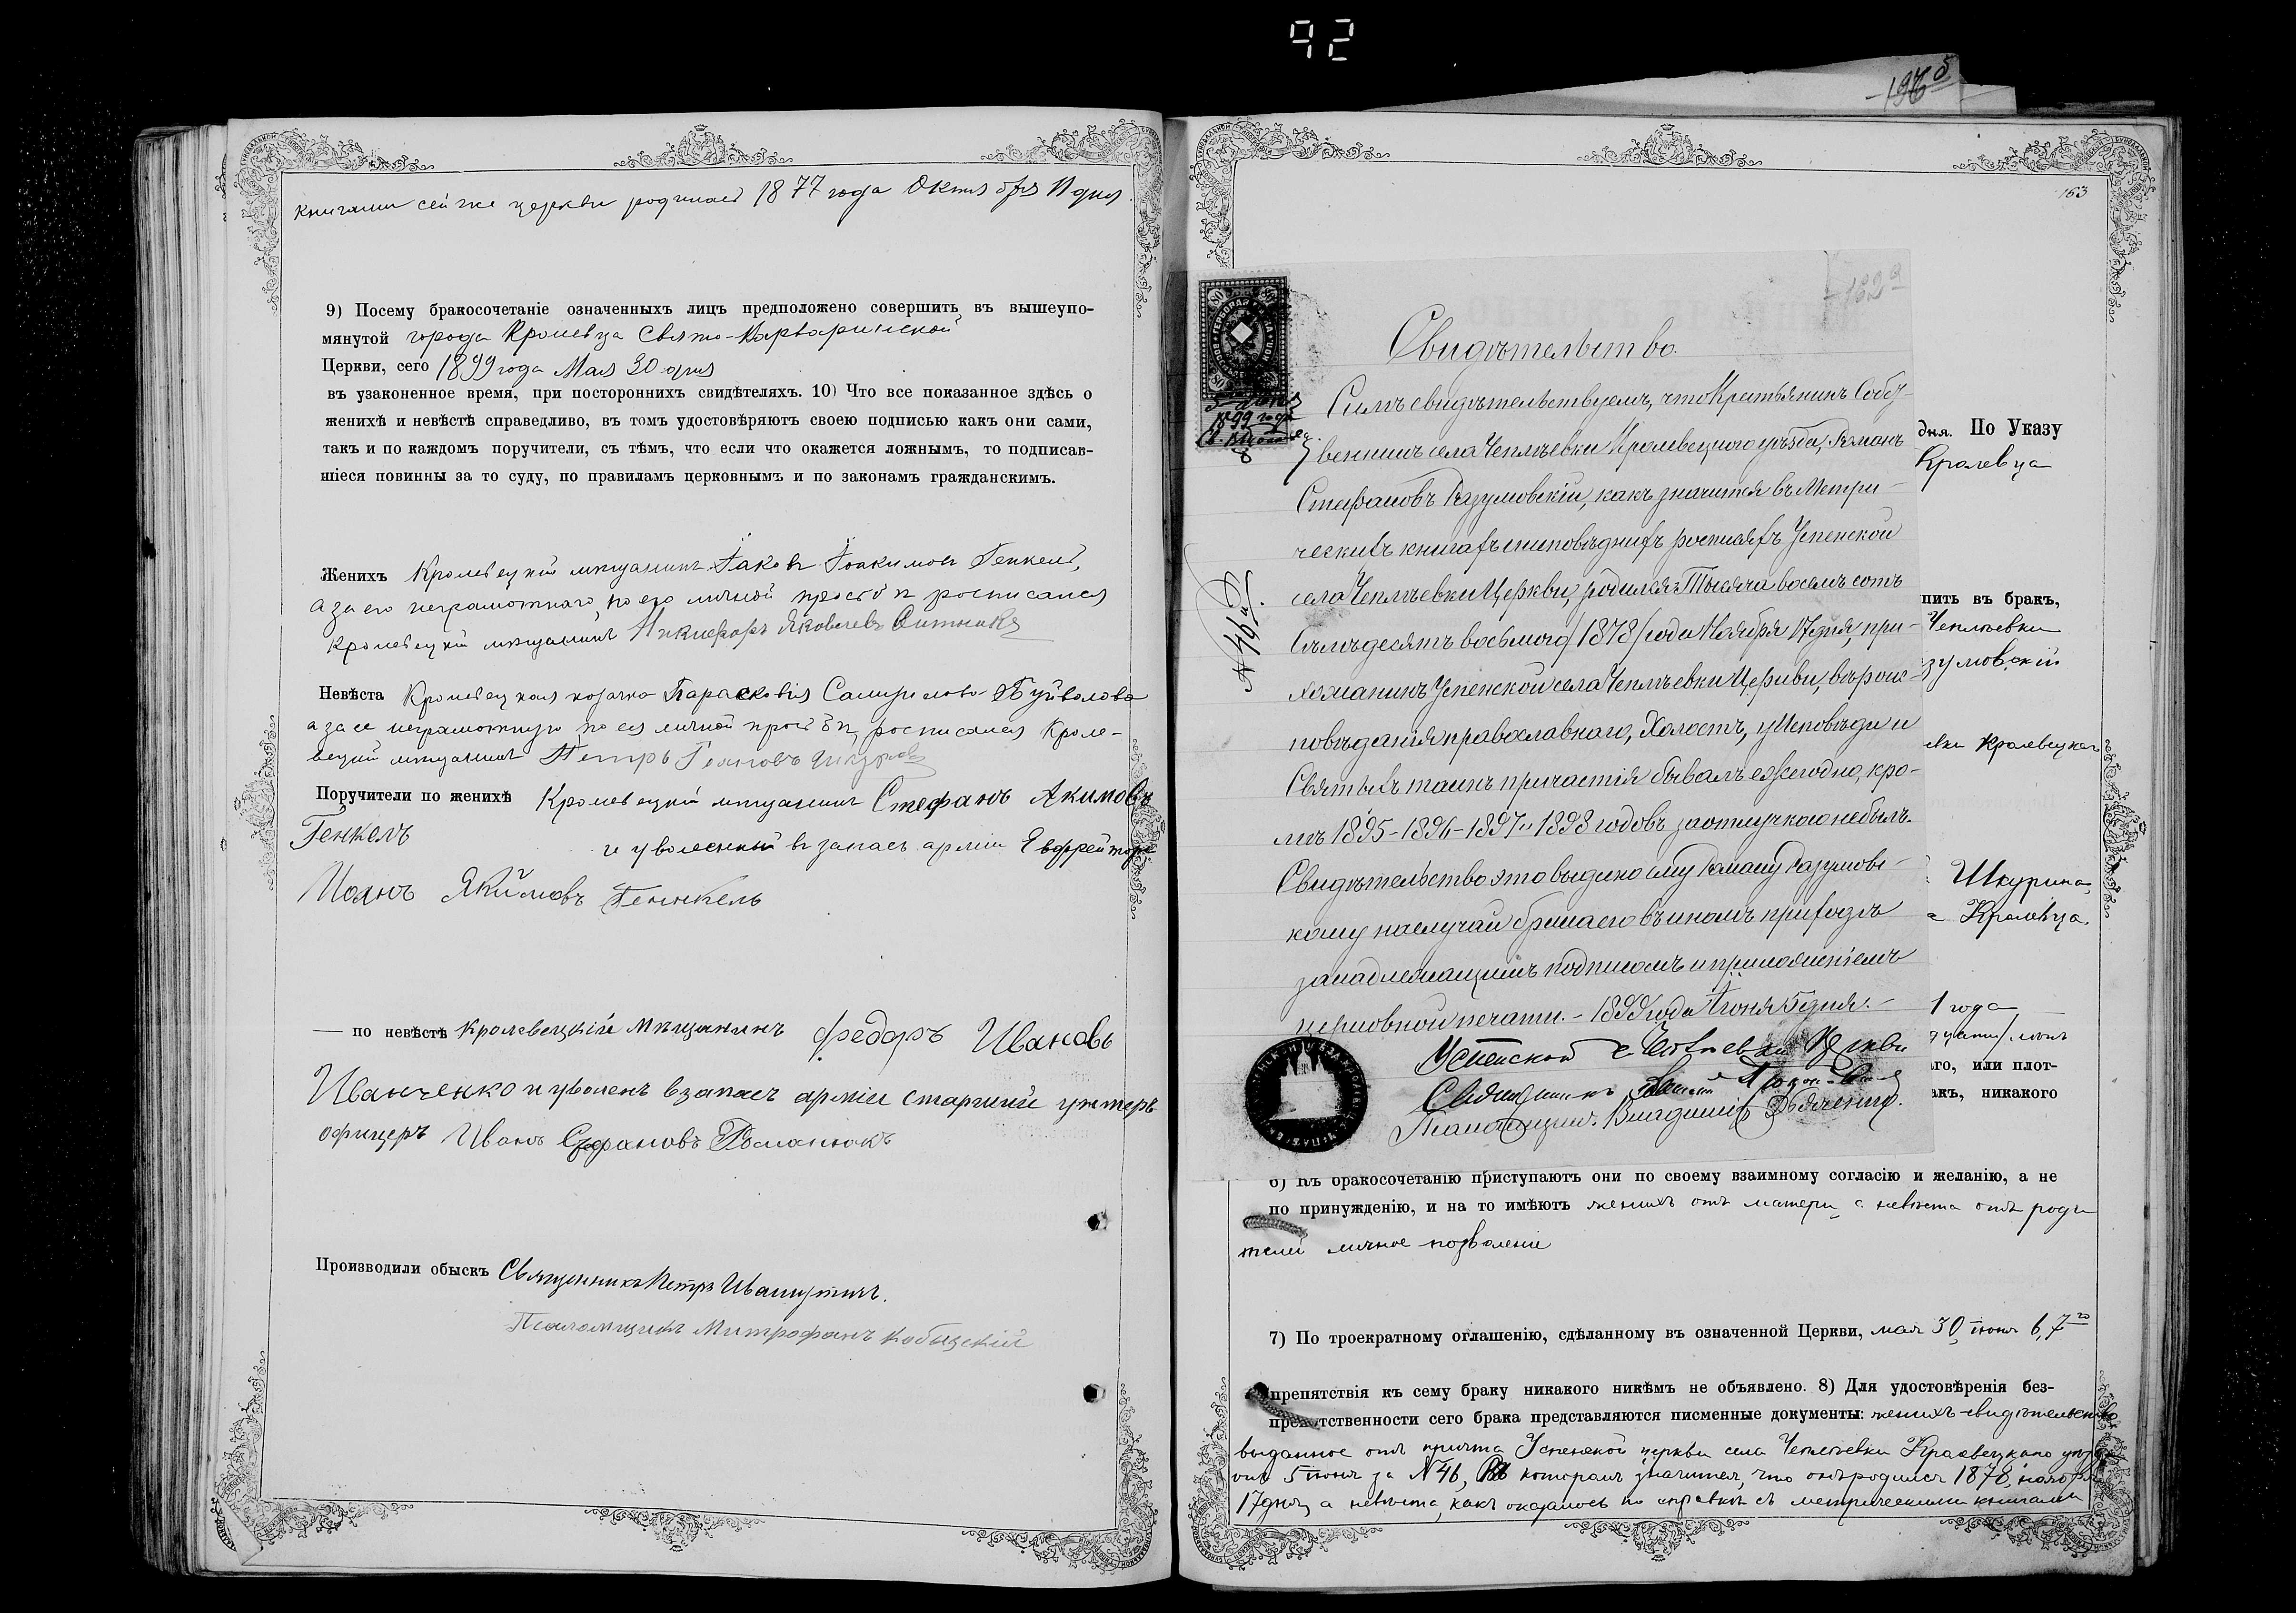 92
196 б
книгами сей же церкви родилась 1877 года Октября 11 дня.
9) Посему бракосочетаніе означенныхъ лицъ предположено совершить въ вышеупо-
мянутой города Кролевца Свято-Варваринской
Церкви, сего 1899 года Мая 30 дня
въ узаконенное время, при постороннихъ свидѣтеляхъ. 10) Что все показанное здѣсь о
женихѣ и невѣстѣ справедливо, въ томъ удостовѣряютъ своею подписью какъ они сами,
такъ и по каждомъ поручители, съ тѣмъ, что если что окажется ложнымъ, то подписав-
шіеся повинны за то суду, по правиламъ церковнымъ и по законамъ гражданскимъ.
Женихъ Кролевецкій мѣщанинъ Іаковъ Іоакимовъ Генкель,
а за его неграмотнаго, по его личной просьбѣ росписался
Кролевецкій мѣщанинъ Никифоръ Яковлевъ Ситникъ
Невѣста Кролевецкая козачка Парасковія Самуилова Буйволова
а за ее неграмотную по ея личной просьбѣ, росписался Кроле-
вецкій мѣщанинъ Петръ
Поручители по женихѣ Кролевецкій мѣщанинъ Стефанъ Акимовъ
Генкель
и уволенный въ запасъ арміи Ефрейторъ
Иоанъ Якимовъ Генкель
— по невѣстѣ Кролевецкій Мѣщанинъ Федоръ Ивановъ
Иванченко и уволенъ в запасъ арміи старшій унтеръ
офицеръ Иванъ Стефановъ Романюкъ
Производили обыскъ Священникъ Петръ Ивашутичъ.
Псаломщикъ Митрофанъ Кобыцскій
163
162 а
Свидѣтельство.
Симъ свидѣтельствуемъ, что Крестьянинъ Собст-
венникъ села Чеплѣевки Кролевецкого уѣзда, Романъ
Стефановъ Разумовскій, какъ значится въ Метри-
ческихъ книгахъ и исповѣдныхъ росписяхъ Успенской
села Чеплѣевки Церкви, родился Тысяча восемъ сотъ
Семъдесятъ восьмого /1878/ года Ноября 17 дня, при-
хожанинъ Успенской села Чеплѣевки Церкви, вѣроис-
повѣданія православнаго, Холостъ, у Исповѣди и
Святыхъ таинъ причастія бывалъ ежегодно, кро-
мѣ 1895-1896-1897 и 1898 годовъ за отлучкою не былъ.
Свидѣтельство это выдано ему Роману Разумовс-
кому на случай брака его въ иномъ приходѣ
за надлежащимъ подписомъ и приложеніемъ
церковной печати. - 1899 года Іюня 5 дня. -
Успенской с. Чеплѣевки Церкви
Священникъ
Псаломщикъ Владиміръ Дьяченко.
№ 46й.
80
1899 года
дня. По Указу
Кролевца
пить въ бракъ,
Чеплѣевки
зумовскій
евки Кролевецкаго
Шкурина,
Кролевца.
1 года
го, или плот-
акъ, никакого
6) Къ бракосочетанію приступаютъ они по своему взаимному согласію и желанію, а не
по принужденію, и на то имѣютъ женихъ отъ матери, а невѣста отъ роди
телей личное позволеніе
7) По троекратному оглашенію, сдѣланному въ означенной Церкви, мая 30, іюня 6, 7го
препятствія къ сему браку никакого никѣмъ не объявлено. 8) Для удостовѣренія без-
препятственности сего брака представляются писменные документы: женихъ-свидѣтельство,
выданное отъ причта Успенской церкви села Чеплѣевки Кролевецкаго уѣзда
отъ 5 іюня за № 46, въ которомъ значится, что онъ родился 1878, ноября
17 дня, а невѣста, какъ оказалось по справкѣ съ метрическими книгами